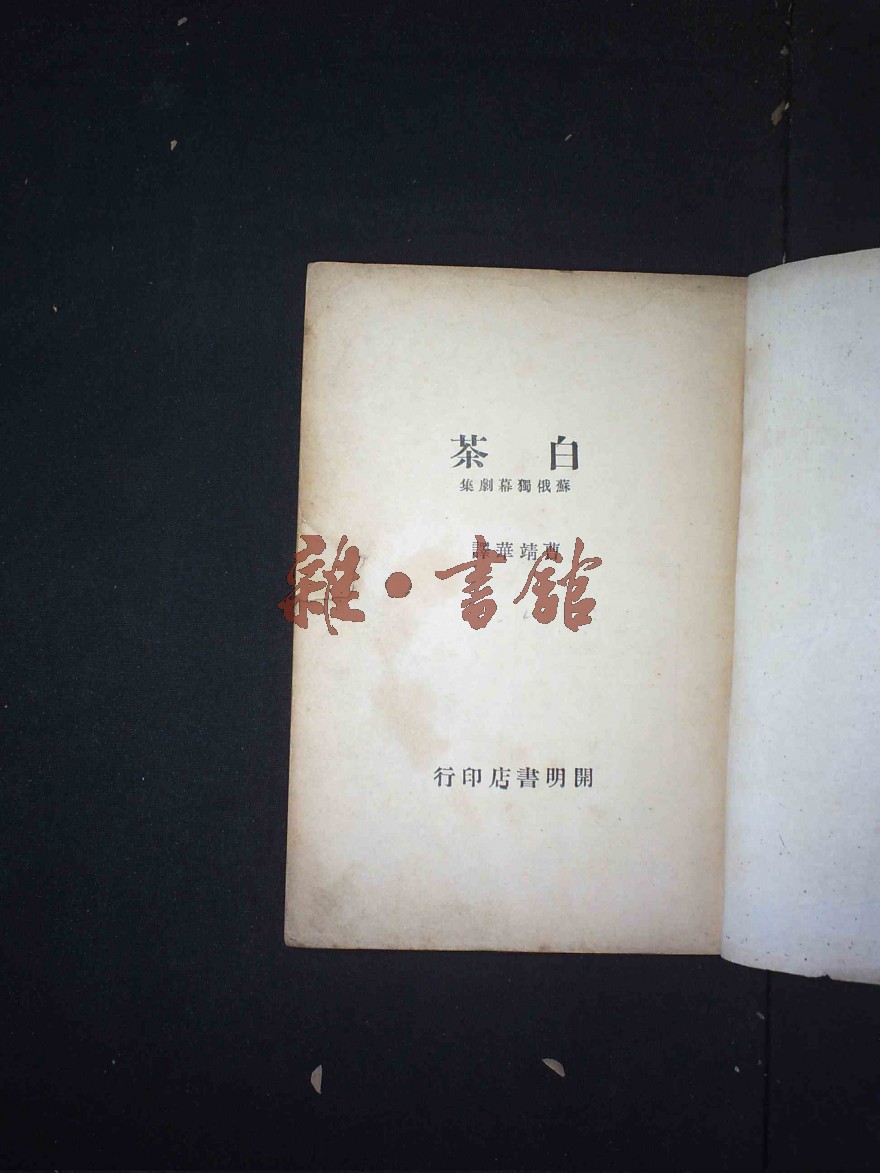 白茶
蘇俄獨幕劇集
曹靖華譯
雜·書館
開明書店印行